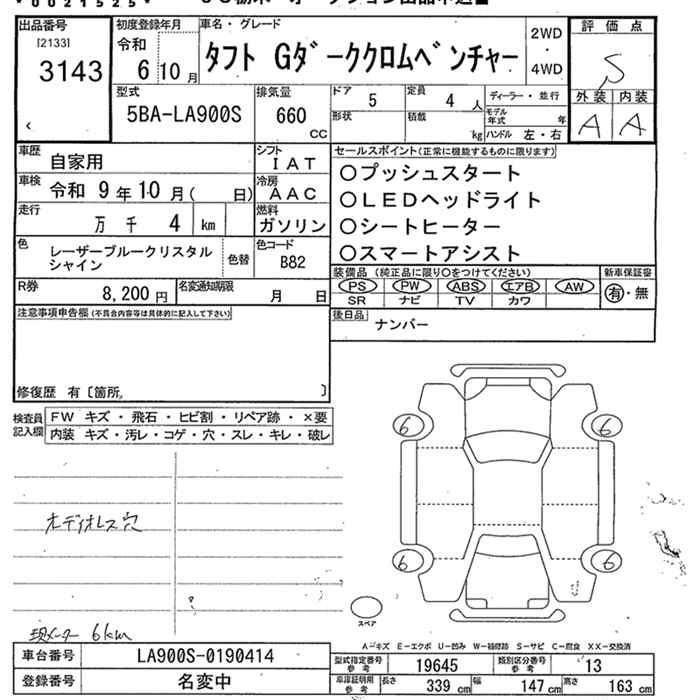 *0021525*
出品番号 [2133] 3143
初度登録年月 令和 6 10 月
車名・グレード タフト Gダーククロムベンチャー
2WD ・ 4WD
評価点 S
外装 A 内装 A
型式 5BA-LA900S
排気量 660 CC
ドア 5 定員 4 人
形状 積載 kg
ディーラー・並行
モデル年式 年
ハンドル 左・右
車歴 自家用
シフト IAT
車検 令和 9 年 10 月( 日)
冷房 AAC
走行 万 千 4 km
燃料 ガソリン
色 レーザーブルークリスタルシャイン 色替
色コード B82
R券 8,200 円
名変通知期限 月 日
セールスポイント(正常に機能するものに限ります)
○プッシュスタート
○LEDヘッドライト
○シートヒーター
○スマートアシスト
装備品 (純正品に限り○をつけてください)
PS PW ABS エアB AW
SR ナビ TV カワ
新車保証書 有・無
後日品 ナンバー
注意事項申告欄(不具合内容等は具体的に記入して下さい)
修復歴 有〔箇所 〕
検査員記入欄
FW キズ・飛石・ヒビ割・リペア跡・×要
内装 キズ・汚レ・コゲ・穴・スレ・キレ・破レ
オーディオレス穴
現メーター 6km
6 6
6 6
スペア
A－キズ E－エクボ U－凹み W－補修跡 S－サビ C－腐食 XX－交換済
車台番号 LA900S-0190414
登録番号 名変中
型式指定番号 参考 19645
類別区分番号 参考 13
車庫証明用 参考 長さ 339 cm 幅 147 cm 高さ 163 cm